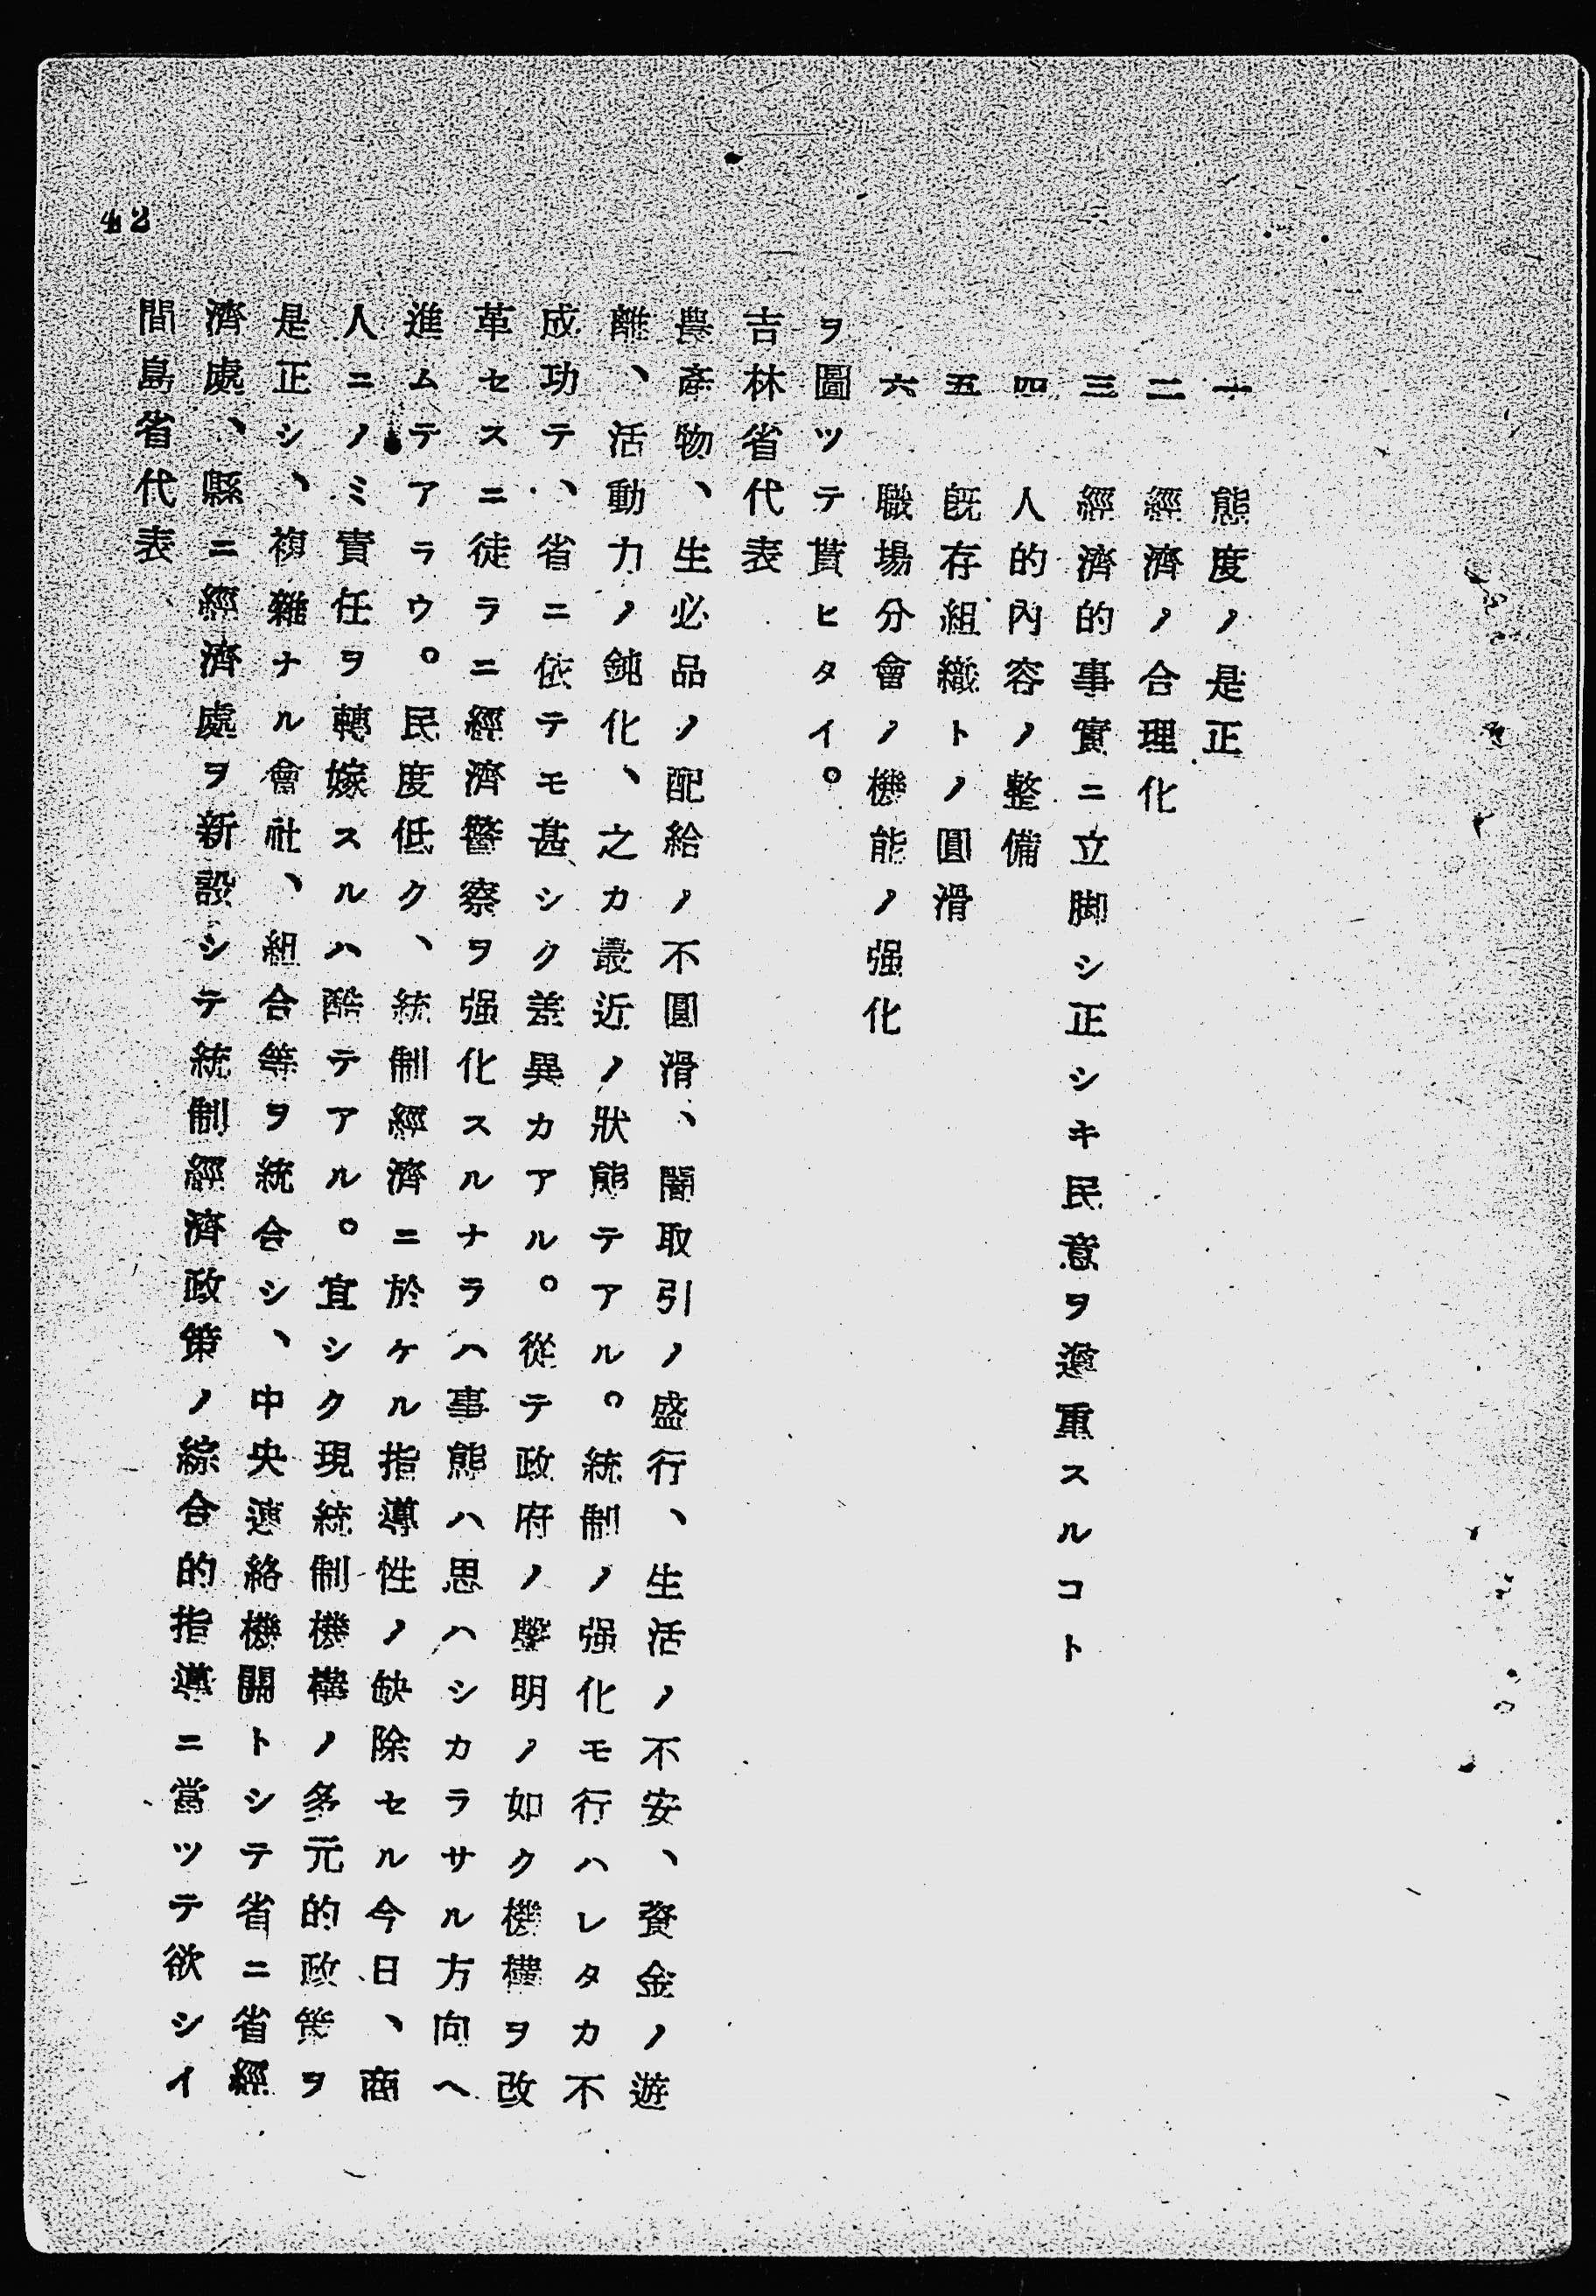 一　態度ノ是正
二　經濟ノ合理化
三　經濟的事實ニ立脚シ正シキ民意ヲ尊重スルコト
四　人的內容ノ整備
五　既存組織トノ圓滑
六　職場分會ノ機能ノ强化
ヲ圖ツテ貰ヒタイ。
吉林省代表
農產物、生必品ノ配給ノ不圓滑、闇取引ノ盛行、生活ノ不安、資金ノ遊
離、活動力ノ鈍化、之カ最近ノ狀態テアル。統制ノ强化モ行ハレタカ不
成功テ、省ニ依テモ甚シク差異カアル。從テ政府ノ聲明ノ如ク機構ヲ改
革セスニ徒ラニ經濟警察ヲ强化スルナラハ事態ハ思ハシカラサル方向へ
進ムテアラウ。民度低ク、統制經濟ニ於ケル指導性ノ缺除セル今日、商
人ニノミ責任ヲ轉嫁スルハ酷テアル。宜シク現統制機構ノ多元的政策ヲ
是正シ、複雜ナル會社、組合等ヲ統合シ、中央連絡機關トシテ省ニ省經
濟處、縣ニ經濟處ヲ新設シテ統制經濟政策ノ綜合的指導ニ當ツテ欲シイ
間島省代表
42